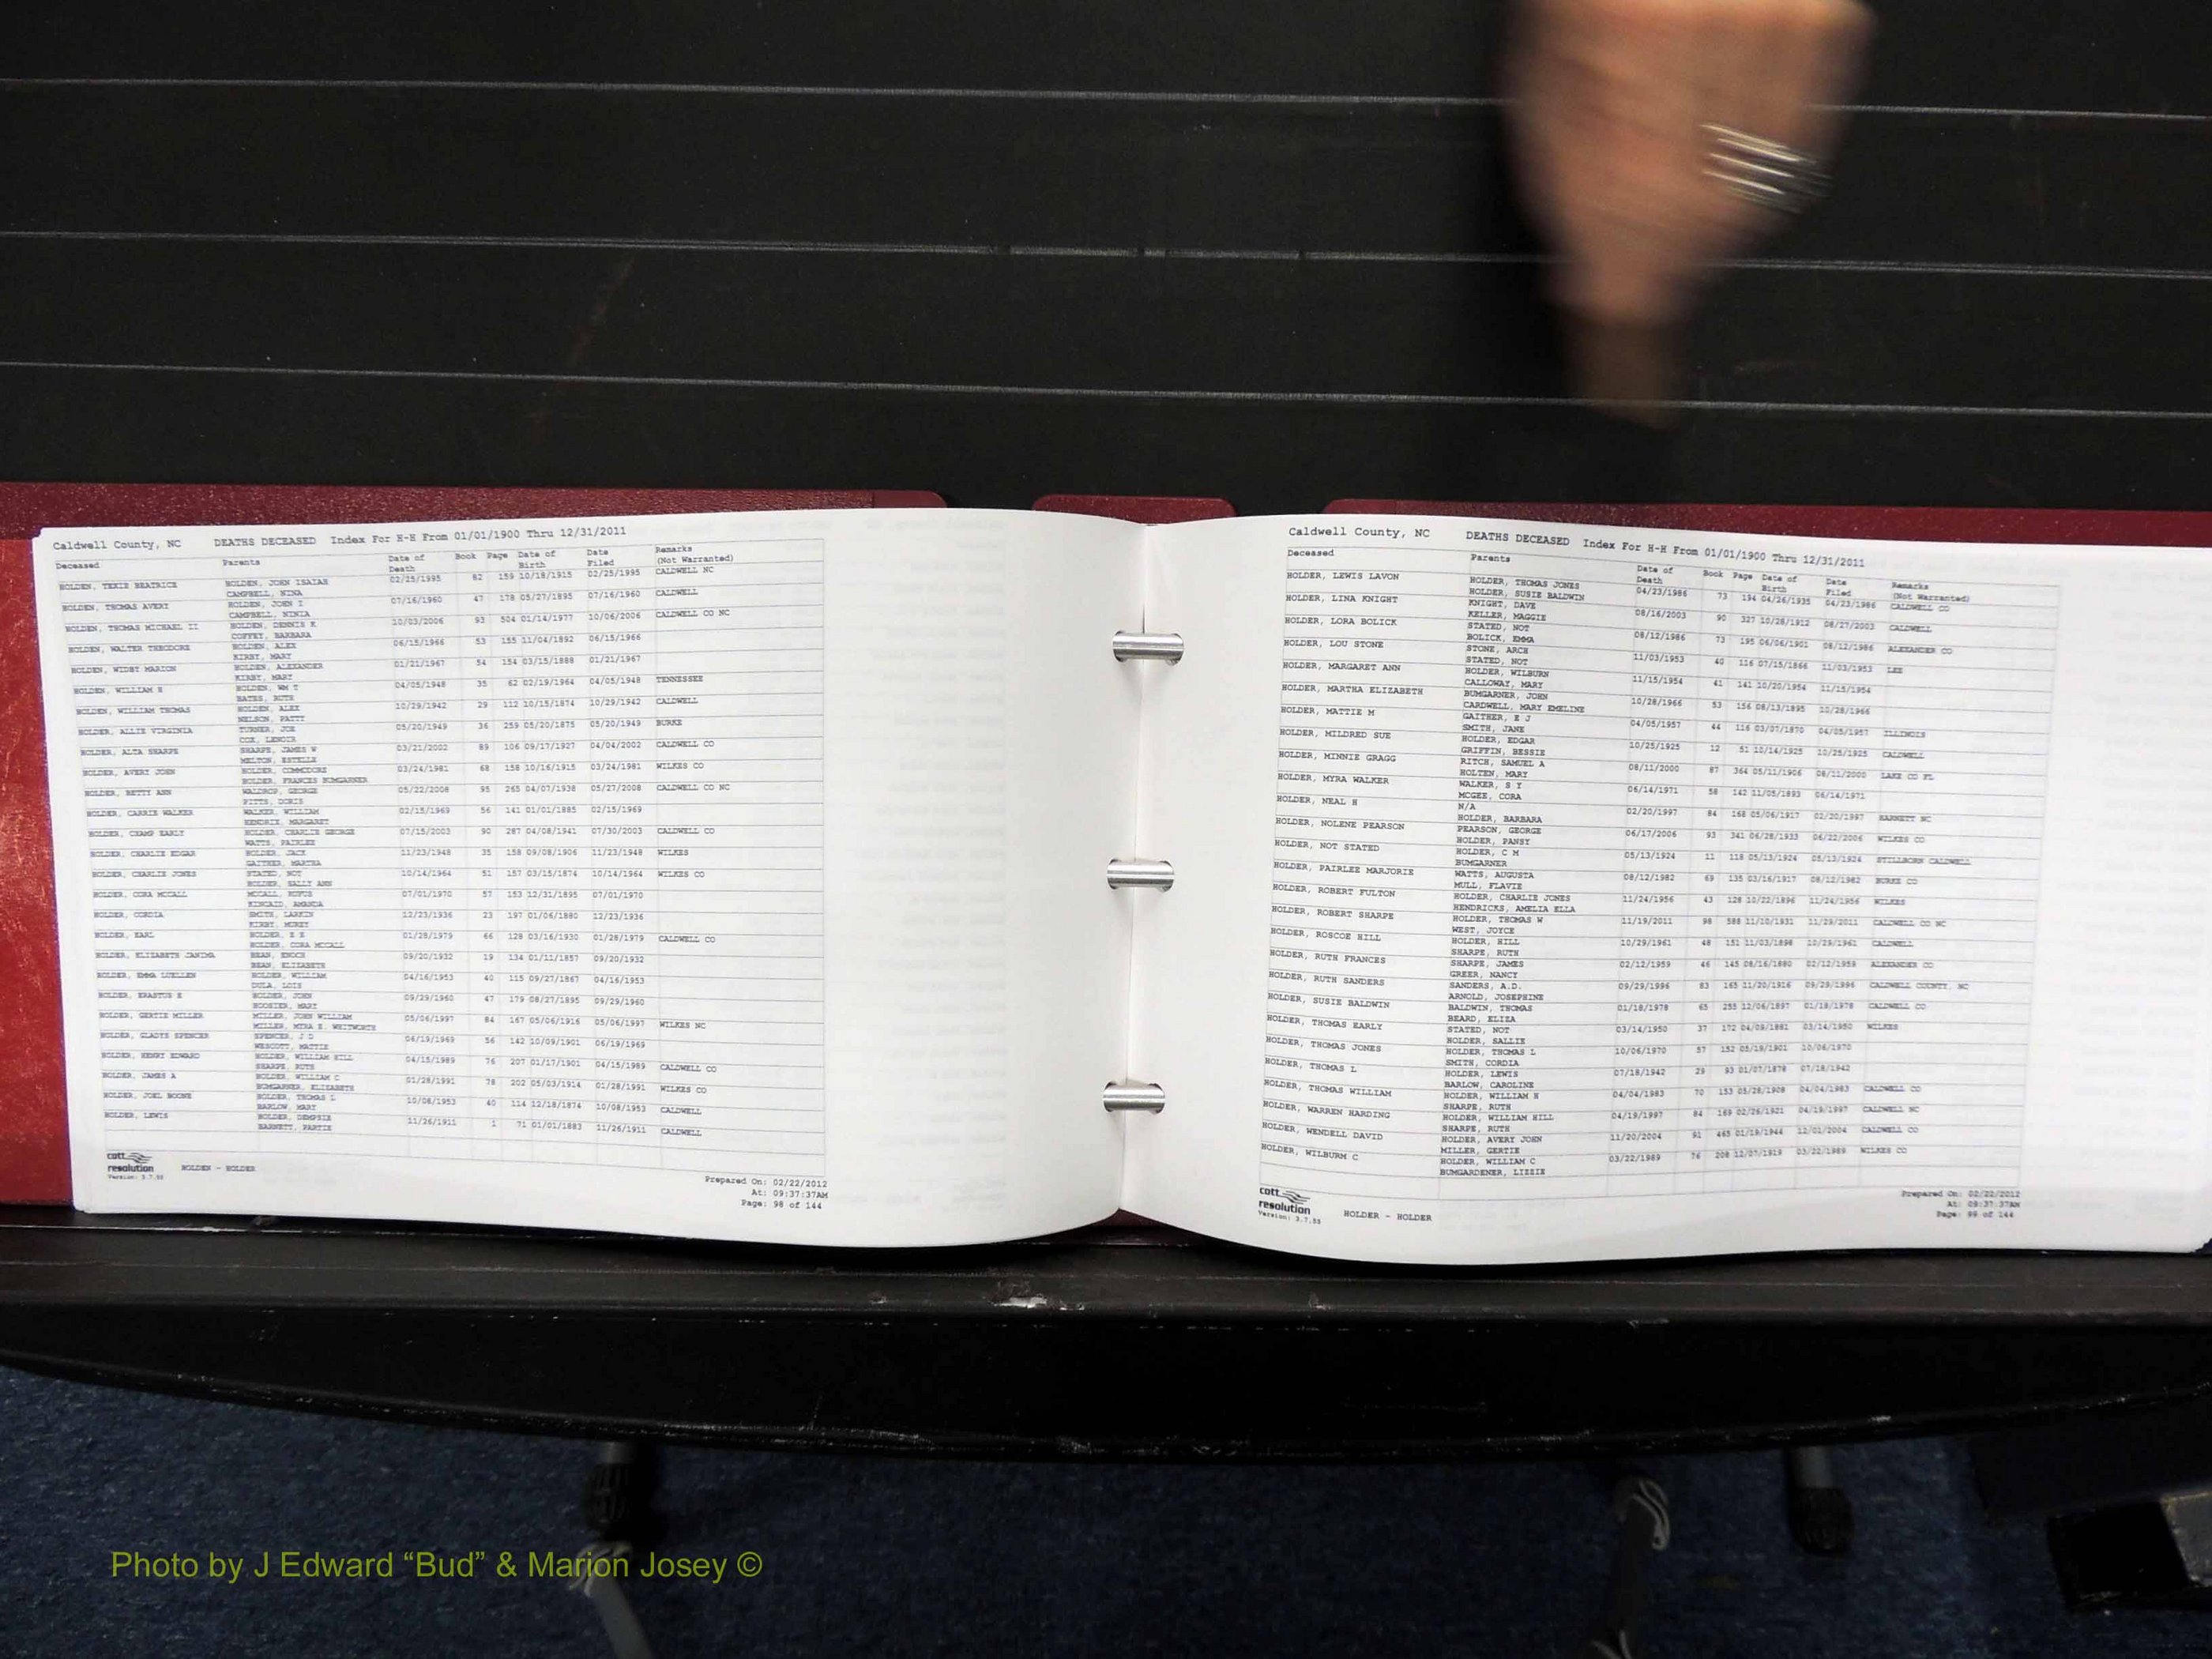 Caldwell County, NC DEATHS DECEASED Index For H-H From 01/01/1900 Thru 12/31/2011
Deceased Parents Date of Death Book Page Date of Birth Date Filed Remarks (Not Warranted)
HOLDEN, TEXIE BEATRICE HOLDEN, JOHN ISAIAH 02/25/1995 82 159 10/18/1915 02/25/1995 CALDWELL NC
CAMPBELL, NINA
HOLDEN, THOMAS AVERY HOLDEN, JOHN I 07/16/1960 47 178 05/27/1895 07/16/1960 CALDWELL
CAMPBELL, NINIA
HOLDEN, THOMAS MICHAEL II HOLDEN, DENNIS K 10/03/2006 93 504 01/14/1977 10/06/2006 CALDWELL CO NC
COFFEY, BARBARA
HOLDEN, WALTER THEODORE HOLDEN, ALEX 06/15/1966 53 155 11/04/1892 06/15/1966
KIRBY, MARY
HOLDEN, WIDBY MARION HOLDEN, ALEXANDER 01/21/1967 54 154 03/15/1888 01/21/1967
KIRBY, MARY
HOLDEN, WILLIAM HOLDEN, WM T 04/05/1948 35 62 02/19/1964 04/05/1948 TENNESSEE
BATES, RUTH
HOLDEN, WILLIAM THOMAS HOLDEN, ALEX 10/29/1942 29 112 10/15/1874 10/29/1942 CALDWELL
NELSON, PATTY
HOLDER, ALLIE VIRGINIA TURNER, JOE 05/20/1949 36 259 05/20/1875 05/20/1949 BURKE
COX, LENOIR
HOLDER, ALTA SHARPE SHARPE, JAMES W 03/21/2002 89 106 09/17/1927 04/04/2002 CALDWELL CO
MELTON, ESTELLE
HOLDER, AVERY JOHN HOLDER, COMMODORE 03/24/1981 68 158 10/16/1915 03/24/1981 WILKES CO
HOLDER, FRANCES BUMGARNER
HOLDER, BETTY ANN WALDROP, GEORGE 05/22/2008 95 265 04/07/1938 05/27/2008 CALDWELL CO NC
PITTS, DORIS
HOLDER, CARRIE WALKER WALKER, WILLIAM 02/15/1969 56 141 01/01/1885 02/15/1969
HENDRIX, MARGARET
HOLDER, CHAMP EARLY HOLDER, CHARLIE GEORGE 07/15/2003 90 287 04/08/1941 07/30/2003 CALDWELL CO
WATTS, PAIRLEE
HOLDER, CHARLIE EDGAR HOLDER, JACK 11/23/1948 35 158 09/08/1906 11/23/1948 WILKES
GAITHER, MARTHA
HOLDER, CHARLIE JONES STATED, NOT 10/14/1964 51 157 03/15/1874 10/14/1964 WILKES CO
HOLDER, SALLY ANN
HOLDER, CORA MCCALL MCCALL, RUFUS 07/01/1970 57 153 12/31/1895 07/01/1970
KINCAID, AMANDA
HOLDER, CORDIA SMITH, LARKIN 12/23/1936 23 197 01/06/1880 12/23/1936
KIRBY,
HOLDER, EARL HOLDER, 01/28/1979 66 128 03/16/1930 01/28/1979 CALDWELL CO
HOLDER, CORA MCCALL
HOLDER, ELIZABETH BEAN, ENOCH 09/20/1932 19 134 01/11/1857 09/20/1932
BEAN, ELIZABETH
HOLDER, EMMA LUELLEN HOLDER, WILLIAM 04/16/1953 40 115 09/27/1867 04/16/1953
DULA, LOIS
HOLDER, ERASTUS E HOLDER, JOHN 09/29/1960 47 179 08/27/1895 09/29/1960
HOOSIER, MARY
HOLDER, GERTIE MILLER MILLER, JOHN WILLIAM 05/06/1997 84 167 05/06/1916 05/06/1997 WILKES NC
MILLER, MYRA E. WHITWORTH
HOLDER, GLADYS SPENCER SPENCER, J D 06/19/1969 56 142 10/09/1901 06/19/1969
WESCOTT, MATTIE
HOLDER, HENRY EDWARD HOLDER, WILLIAM HILL 04/15/1989 76 207 01/17/1901 04/15/1989 CALDWELL CO
SHARPE, RUTH
HOLDER, JAMES A HOLDER, WILLIAM C 01/28/1991 78 202 05/03/1914 01/28/1991 WILKES CO
BUMGARNER, ELIZABETH
HOLDER, JOEL BOONE HOLDER, THOMAS L 10/08/1953 40 114 12/18/1874 10/08/1953 CALDWELL
BARLOW, MARY
HOLDER, LEWIS HOLDER, DEMPSIE 11/26/1911 1 71 01/01/1883 11/26/1911 CALDWELL
BARNETT, PARTIE
cott
resolution HOLDEN - HOLDER
Version: 3.7.55
Prepared On: 02/22/2012
At: 09:37:37AM
Page: 98 of 144
Caldwell County, NC DEATHS DECEASED Index For H-H From 01/01/1900 Thru 12/31/2011
Deceased Parents Date of Death Book Page Date of Birth Date Filed Remarks (Not Warranted)
HOLDER, LEWIS LAVON HOLDER, THOMAS JONES 04/23/1986 73 194 04/26/1935 04/23/1986 CALDWELL CO
HOLDER, SUSIE BALDWIN
HOLDER, LINA KNIGHT KNIGHT, DAVE 08/16/2003 90 327 10/28/1912 08/27/2003 CALDWELL
KELLER, MAGGIE
HOLDER, LORA BOLICK STATED, NOT 08/12/1986 73 195 06/06/1901 08/12/1986 ALEXANDER CO
BOLICK, EMMA
HOLDER, LOU STONE STONE, ARCH 11/03/1953 40 116 07/15/1866 11/03/1953 LEE
STATED, NOT
HOLDER, MARGARET ANN HOLDER, WILBURN 11/15/1954 41 141 10/20/1954 11/15/1954
CALLOWAY, MARY
HOLDER, MARTHA ELIZABETH BUMGARNER, JOHN 10/28/1966 53 156 08/13/1895 10/28/1966
CARDWELL, MARY EMELINE
HOLDER, MATTIE M GAITHER, E J 04/05/1957 44 116 03/07/1870 04/05/1957 ILLINOIS
SMITH, JANE
HOLDER, MILDRED SUE HOLDER, EDGAR 10/25/1925 12 51 10/14/1925 10/25/1925 CALDWELL
GRIFFIN, BESSIE
HOLDER, MINNIE GRAGG RITCH, SAMUEL A 08/11/2000 87 364 05/11/1906 08/11/2000 LAKE CO FL
HOLTEN, MARY
HOLDER, MYRA WALKER WALKER, S Y 06/14/1971 58 142 11/05/1893 06/14/1971
MCGEE, CORA
HOLDER, NEAL H N/A 02/20/1997 84 168 05/06/1917 02/20/1997 HARNETT NC
HOLDER, BARBARA
HOLDER, NOLENE PEARSON PEARSON, GEORGE 06/17/2006 93 341 06/28/1933 06/22/2006 WILKES CO
HOLDER, PANSY
HOLDER, NOT STATED HOLDER, C M 05/13/1924 11 118 05/13/1924 05/13/1924 STILLBORN CALDWELL
BUMGARNER
HOLDER, PAIRLEE MARJORIE WATTS, AUGUSTA 08/12/1982 69 135 03/16/1917 08/12/1982 BURKE CO
MULL, FLAVIE
HOLDER, ROBERT FULTON HOLDER, CHARLIE JONES 11/24/1956 43 128 10/22/1896 11/24/1956 WILKES
HENDRICKS, AMELIA ELLA
HOLDER, ROBERT SHARPE HOLDER, THOMAS W 11/19/2011 98 588 11/10/1931 11/29/2011 CALDWELL CO NC
WEST, JOYCE
HOLDER, ROSCOE HILL HOLDER, HILL 10/29/1961 48 151 11/03/1898 10/29/1961 CALDWELL
SHARPE, RUTH
HOLDER, RUTH FRANCES SHARPE, JAMES 02/12/1959 46 145 08/16/1880 02/12/1959 ALEXANDER CO
GREER, NANCY
HOLDER, RUTH SANDERS SANDERS, A.D. 09/29/1996 83 165 11/20/1916 09/29/1996 CALDWELL COUNTY, NC
ARNOLD, JOSEPHINE
HOLDER, SUSIE BALDWIN BALDWIN, THOMAS 01/18/1978 65 255 12/06/1897 01/18/1978 CALDWELL CO
BEARD, ELIZA
HOLDER, THOMAS EARLY STATED, NOT 03/14/1950 37 172 04/09/1881 03/14/1950 WILKES
HOLDER, SALLIE
HOLDER, THOMAS JONES HOLDER, THOMAS L 10/06/1970 57 152 05/19/1901 10/06/1970
SMITH, CORDIA
HOLDER, THOMAS L HOLDER, LEWIS 07/18/1942 29 93 01/07/1878 07/18/1942
BARLOW, CAROLINE
HOLDER, THOMAS WILLIAM HOLDER, WILLIAM H 04/04/1983 70 153 05/28/1908 04/04/1983 CALDWELL CO
SHARPE, RUTH
HOLDER, WARREN HARDING HOLDER, WILLIAM HILL 04/19/1997 84 169 02/26/1921 04/19/1997 CALDWELL NC
SHARPE, RUTH
HOLDER, WENDELL DAVID HOLDER, AVERY JOHN 11/20/2004 91 465 01/19/1944 12/01/2004 CALDWELL CO
MILLER, GERTIE
HOLDER, WILBURN C HOLDER, WILLIAM C 03/22/1989 76 208 12/07/1919 03/22/1989 WILKES CO
BUMGARDENER, LIZZIE
cott
resolution HOLDER - HOLDER
Version: 3.7.55
Prepared On: 02/22/2012
At: 09:37:37AM
Page: 99 of 144
Photo by J Edward “Bud” & Marion Josey ©